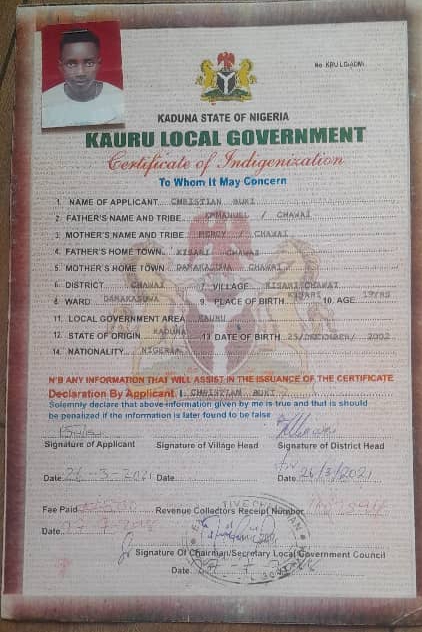 No. KRU LG/ADM
KADUNA STATE OF NIGERIA
KAURU LOCAL GOVERNMENT
Certificate of Indigenization
To Whom It May Concern
1. NAME OF APPLICANT CHRISTIAN BUKI
2. FATHER'S NAME AND TRIBE EMMANUEL / CHAWAI
3. MOTHER'S NAME AND TRIBE MERCY / CHAWAI
4. FATHER'S HOME TOWN KISARI CHAWAI
5. MOTHER'S HOME TOWN DAMAKASUWA CHAWAI
6. DISTRICT CHAWAI 7. VILLAGE KISARI CHAWAI
8. WARD DAMAKASUWA 9. PLACE OF BIRTH KISARI 10. AGE 19YRS
11. LOCAL GOVERNMENT AREA KAURU
12. STATE OF ORIGIN KADUNA 13. DATE OF BIRTH 25/DECEMBER/ 2002
14. NATIONALITY NIGERIA
N'B ANY INFORMATION THAT WILL ASSIST IN THE ISSUANCE OF THE CERTIFICATE
Declaration By Applicant I CHRISTIAN BUKI
Solemnly declare that above information given by me is true and that is should
be penalized if the information is later found to be false
Signature of Applicant Signature of Village Head Signature of District Head
Date 26-3-2021 Date Date 26/3/2021
Fee Paid Revenue Collectors Receipt Number
Date
Signature Of Chairman/Secretary Local Government Council
Date